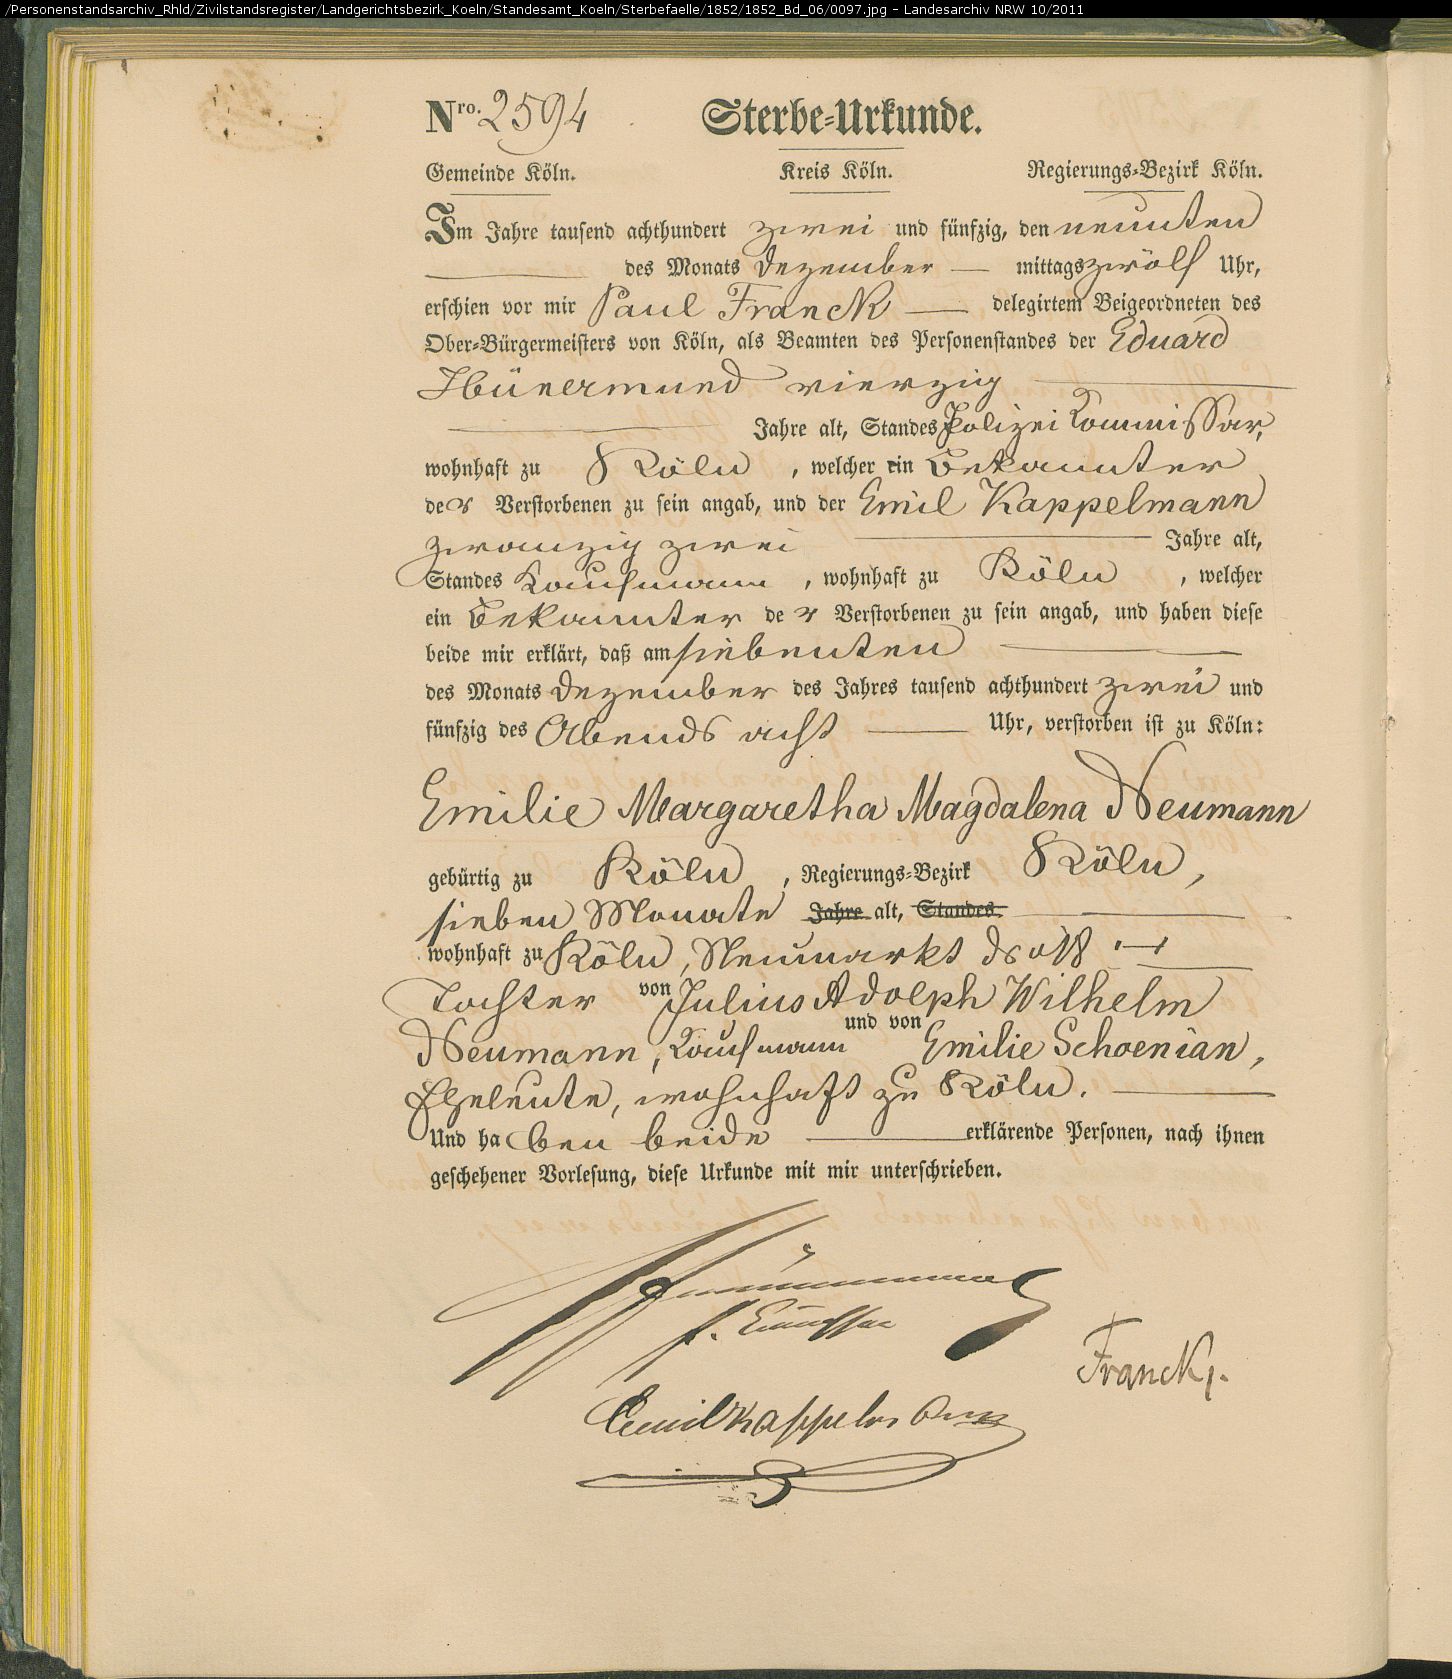 /Personenstandsarchiv_Rhld/Zivilstandsregister/Landgerichtsbezirk_Koeln/Standesamt_Koeln/Sterbefaelle/1852/1852_Bd_06/0097.jpg - Landesarchiv NRW 10/2011
Nro. 2594 Sterbe-Urkunde.
Gemeinde Köln. Kreis Köln. Regierungs-Bezirk Köln.
Im Jahre tausend achthundert zwei und fünfzig, den neunten
des Monats Dezember mittags zwölf Uhr,
erschien vor mir Paul Franck delegirtem Beigeordneten des
Ober-Bürgermeisters von Köln, als Beamten des Personenstandes der Eduard
Thünermund vierzig
Jahre alt, Standes Polizei Commissar,
wohnhaft zu Köln, welcher ein Bekannter
der Verstorbenen zu sein angab, und der Emil Kappelmann
zwanzig zwei Jahre alt,
Standes Kaufmann, wohnhaft zu Köln, welcher
ein Bekannter der Verstorbenen zu sein angab, und haben diese
beide mir erklärt, daß am siebenten
des Monats Dezember des Jahres tausend achthundert zwei und
fünfzig des Abends acht Uhr, verstorben ist zu Köln:
Emilie Margaretha Magdalena Neumann
gebürtig zu Köln, Regierungs-Bezirk Köln,
sieben Monate Jahre alt, Standes
wohnhaft zu Köln, Neumarkt
Tochter von Julius Adolph Wilhelm
Neumann, Kaufmann und von Emilie Schoenian,
Eheleute, wohnhaft zu Köln.
Und haben beide erklärende Personen, nach ihnen
geschehener Vorlesung, diese Urkunde mit mir unterschrieben.
Franck.
Emil Kappelmann